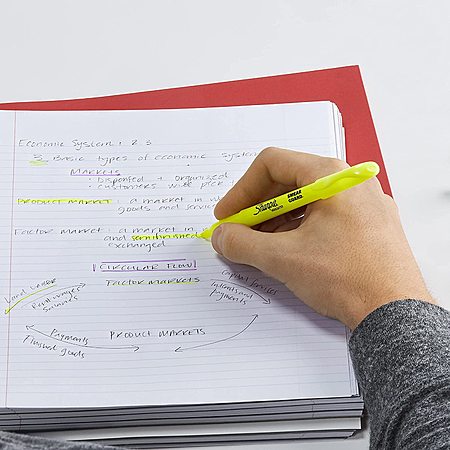 Economic Systems 2.3
3 Basic types of economic system
MARKETS
• Dispersed + organized
• customers will pick
PRODUCT MARKET: a market in
goods and service
Factor Market: a market in
and semifinished
exchanged
CIRCULAR FLOW
FACTOR MARKETS
Land Labor
Capital
Payments
PRODUCT MARKETS
Payments
Finished goods
Sharpie
SMEAR
GUARD